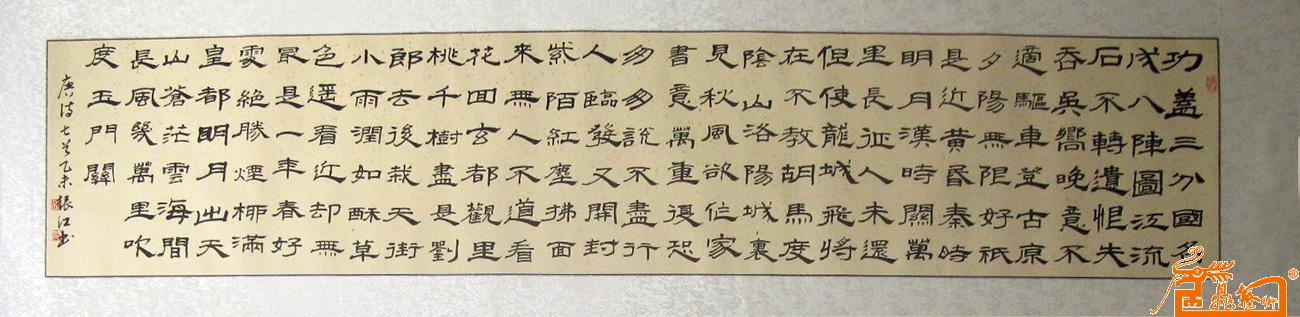 功蓋三分國名
成八陣圖江流
石不轉遺恨失
吞吳嚮晚意不
適驅車登古原
夕陽無限好祇
是近黃昏秦時
明月漢時關萬
里長征人未還
但使龍城飛將
在不教胡馬度
陰山洛陽城裏
見秋風欲作家
書意萬重復恐
匆匆說不盡行
人臨發又開封
紫陌紅塵拂面
來無人不道看
花回玄都觀里
桃千樹盡是劉
郎去後栽天街
小雨潤如酥草
色遥看近却無
最是一年春好
處絕勝煙柳滿
皇都明月出天
山蒼茫雲海間
長風幾萬里吹
度玉門關
唐詩七首乙未振江書